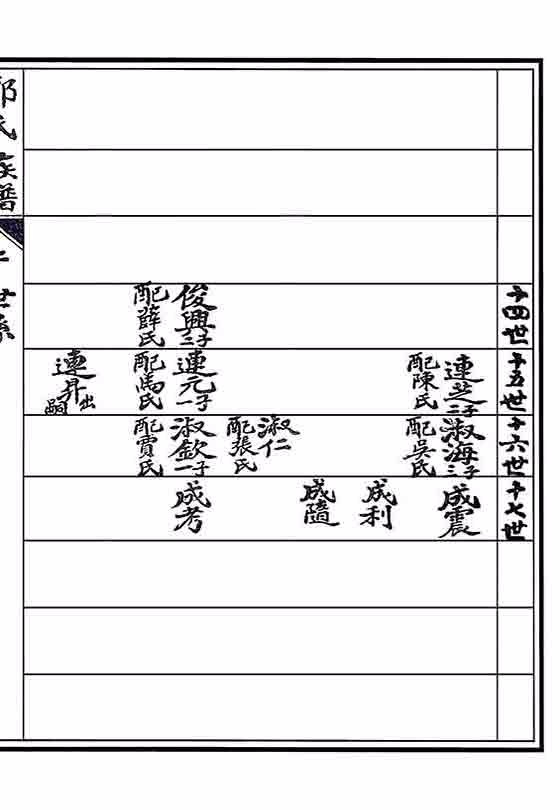 十四世
俊興二子
配薛氏
十五世
連芝二子
配陳氏
連元一子
配馬氏
連昇出嗣
十六世
淑海三子
配吳氏
淑仁
配張氏
淑欽一子
配賈氏
十七世
成震
成利
成隨
成考
氏族譜
世系